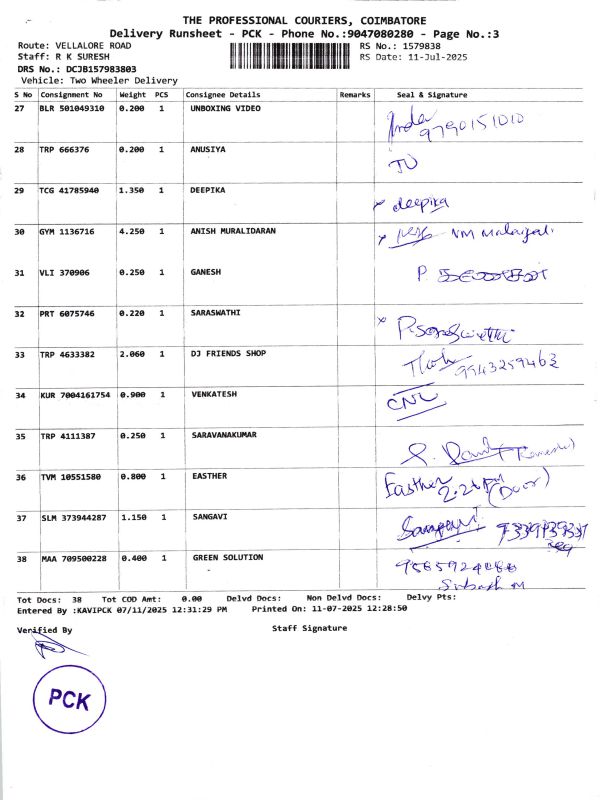 THE PROFESSIONAL COURIERS, COIMBATORE
Delivery Runsheet - PCK - Phone No.:9047080280 - Page No.:3
Route: VELLALORE ROAD RS No.: 1579838
Staff: R K SURESH RS Date: 11-Jul-2025
DRS No.: DCJB157983803
Vehicle: Two Wheeler Delivery
S No Consignment No Weight PCS Consignee Details Remarks Seal & Signature
27 BLR 501049310 0.200 1 UNBOXING VIDEO
9790151010
28 TRP 666376 0.200 1 ANUSIYA
29 TCG 41785940 1.350 1 DEEPIKA x deepika
30 GYM 1136716 4.250 1 ANISH MURALIDARAN x
31 VLI 370906 0.250 1 GANESH P
32 PRT 6075746 0.220 1 SARASWATHI x
33 TRP 4633382 2.060 1 DJ FRIENDS SHOP
9943259463
34 KUR 7004161754 0.900 1 VENKATESH
35 TRP 4111387 0.250 1 SARAVANAKUMAR
36 TVM 10551580 0.800 1 EASTHER Easther
2.26 PM (Door)
37 SLM 373944287 1.150 1 SANGAVI
38 MAA 709500228 0.400 1 GREEN SOLUTION
Subash M
Tot Docs: 38 Tot COD Amt: 0.00 Delvd Docs: Non Delvd Docs: Delvy Pts:
Entered By :KAVIPCK 07/11/2025 12:31:29 PM Printed On: 11-07-2025 12:28:50
Verified By Staff Signature
PCK